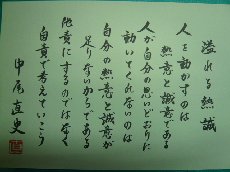 溢れる熱誠
人を動かすのは
熱意と誠意である
人が自分の思いどおりに
動いてくれないのは
自分の熱意と誠意が
足りないからである
他責にするのではなく
自責で考えていこう
直史